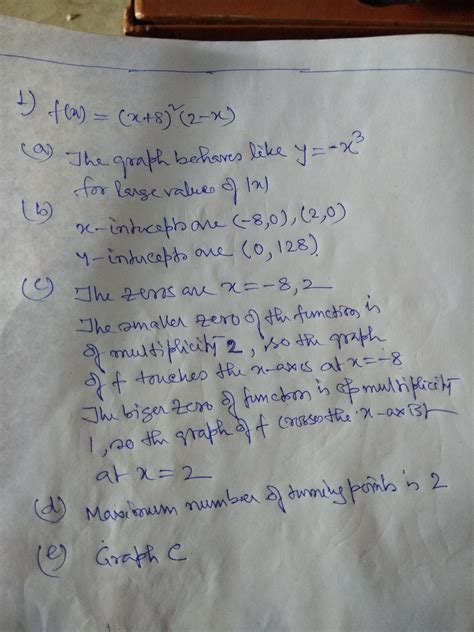 1) f(x) = (x+8)²(2-x)
(a) The graph behaves like y = -x³
for large values of |x|
(b) x-intucepts are (-8,0), (2,0)
y-intucepts are (0, 128).
(c) The zeros are x = -8, 2
The smaller zero of the function is
of multiplicity 2, so the graph
of f touches the x-axis at x = -8
The biger zero of function is of multiplicity
1, so the graph of f crosses the x-axis
at x = 2
(d) Maximum number of turning points is 2
(e) Graph C